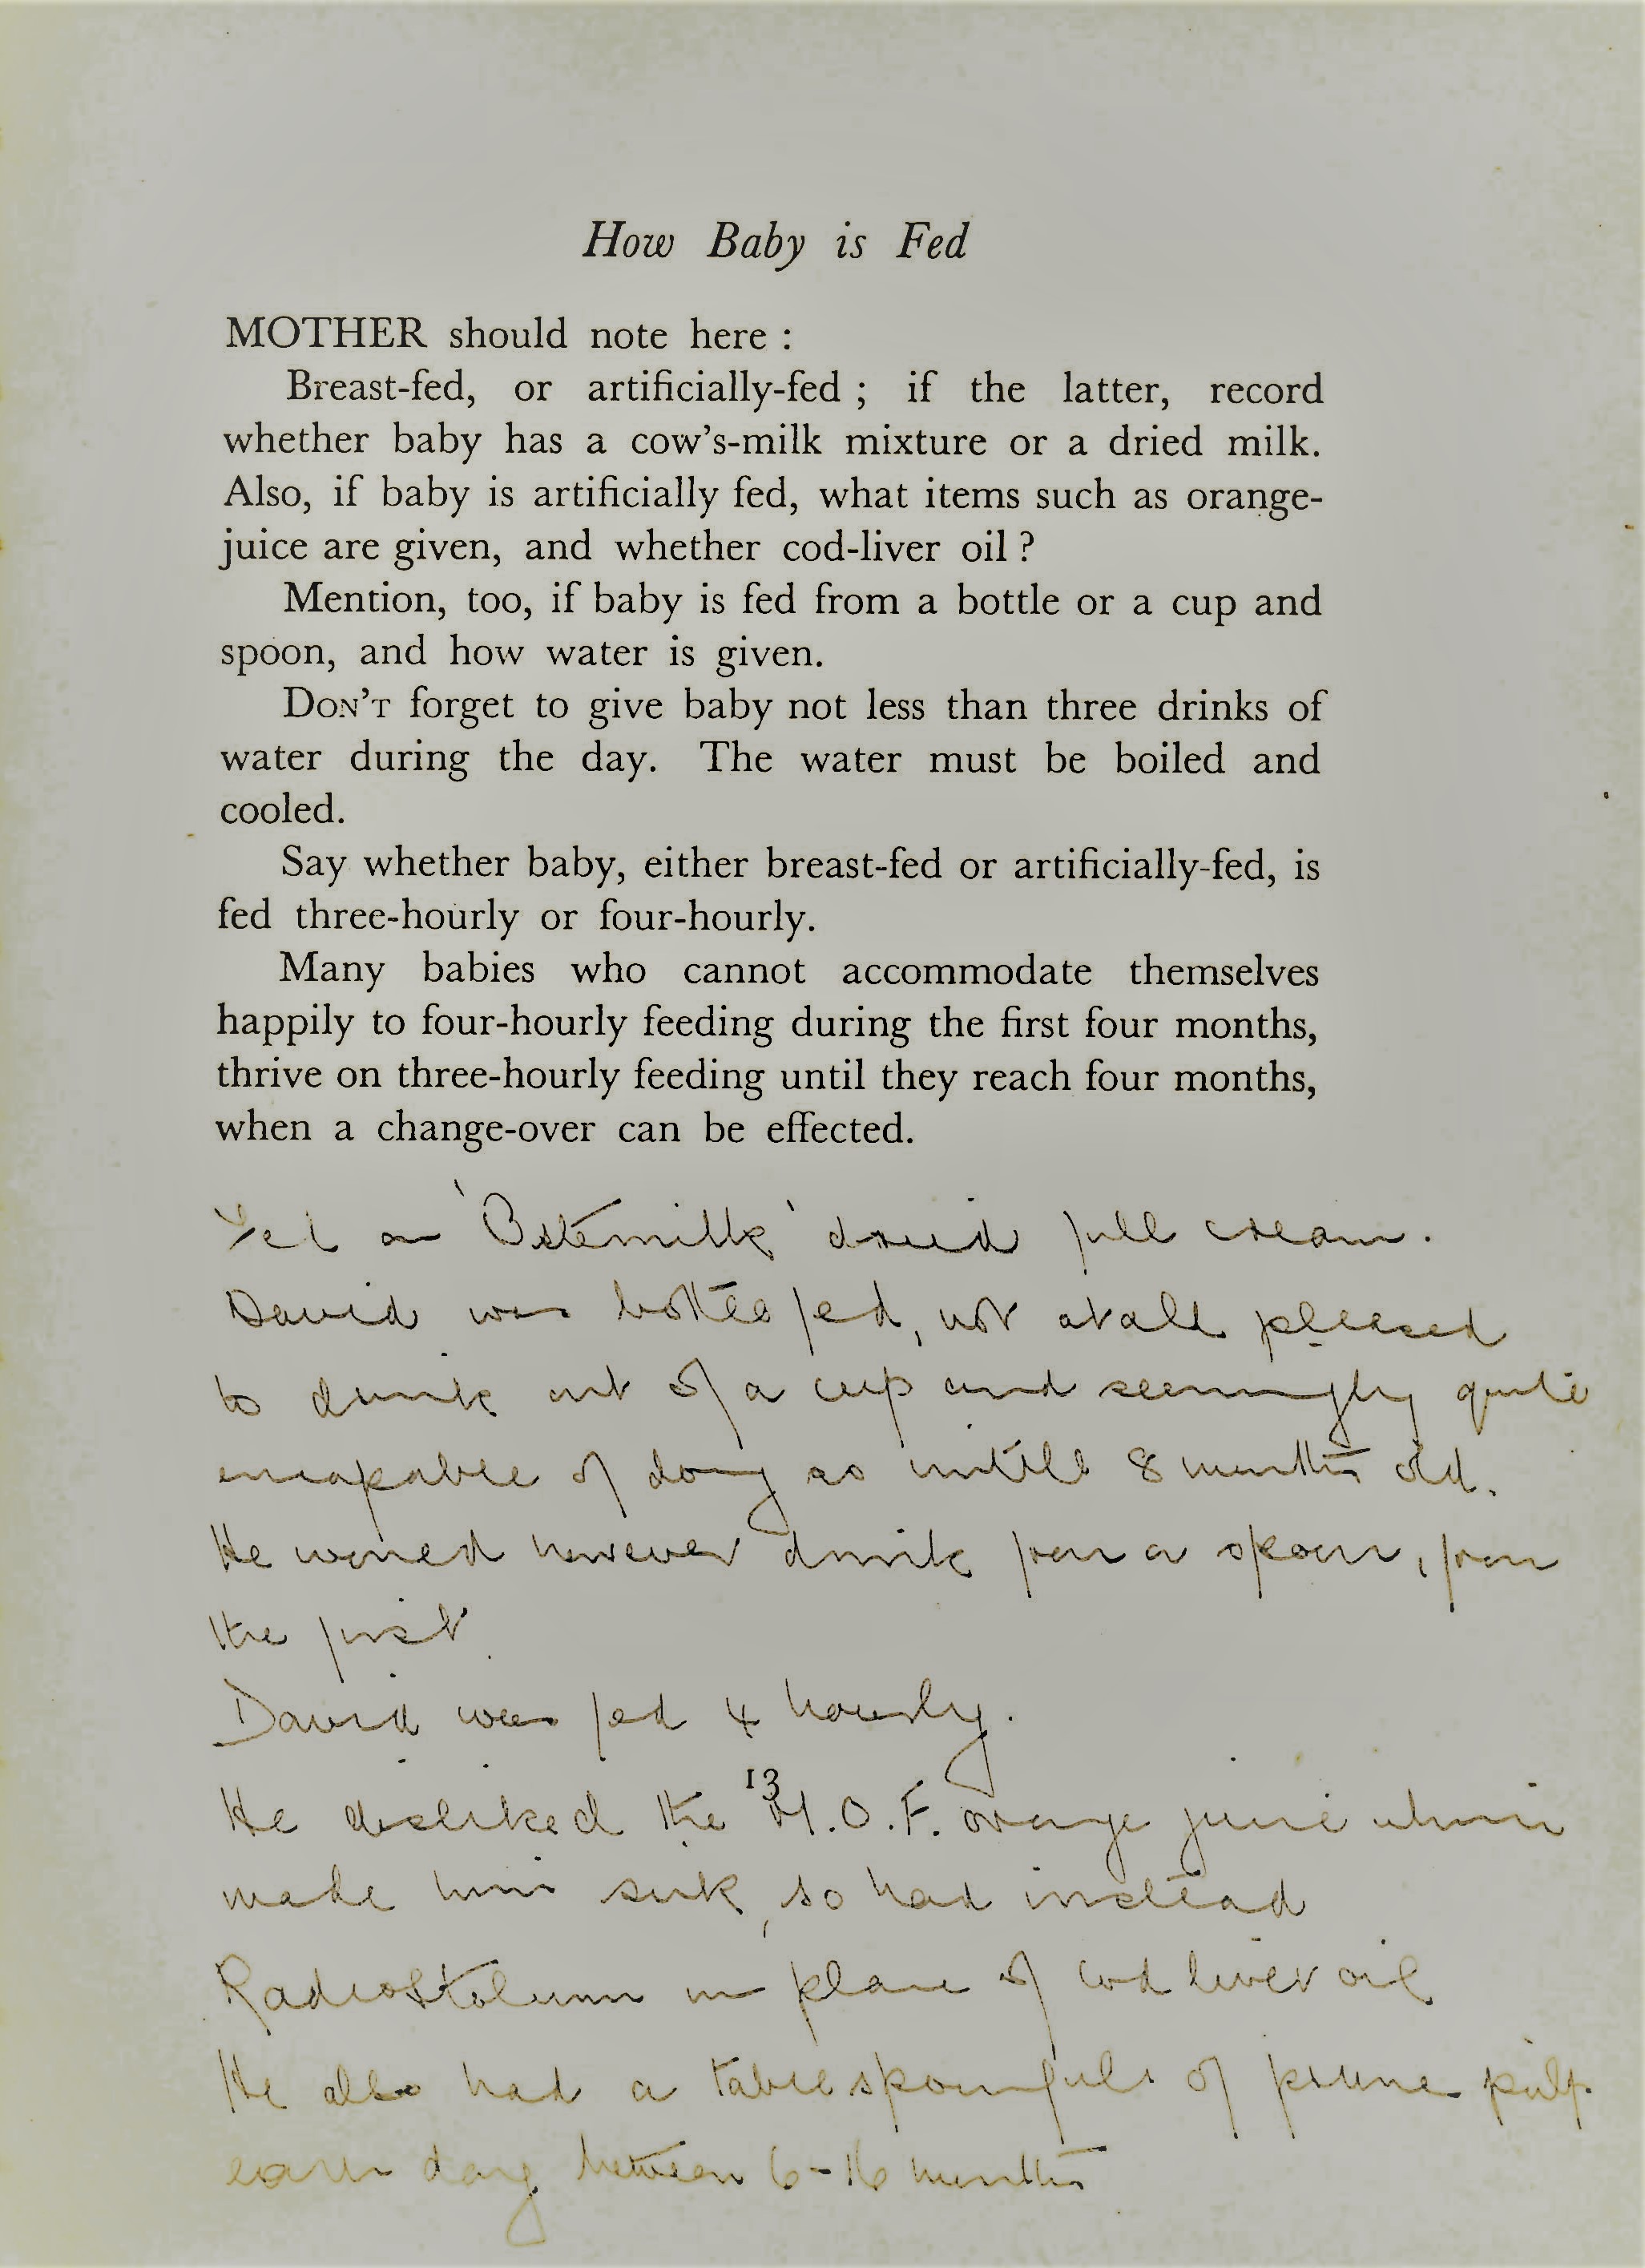 How Baby is Fed
MOTHER should note here :
Breast-fed, or artificially-fed ; if the latter, record
whether baby has a cow's-milk mixture or a dried milk.
Also, if baby is artificially fed, what items such as orange-
juice are given, and whether cod-liver oil ?
Mention, too, if baby is fed from a bottle or a cup and
spoon, and how water is given.
DON'T forget to give baby not less than three drinks of
water during the day. The water must be boiled and
cooled.
Say whether baby, either breast-fed or artificially-fed, is
fed three-hourly or four-hourly.
Many babies who cannot accommodate themselves
happily to four-hourly feeding during the first four months,
thrive on three-hourly feeding until they reach four months,
when a change-over can be effected.
on 'Ostermilk' dried full cream.
David was bottle fed, not at all pleased
to drink out of a cup and seemingly quite
incapable of doing so untill 8 months old.
He would however drink from a spoon, from
the first.
David was fed 4 hourly.
13
He disliked the M.O.F. orange juice which
made him sick, so had instead
Radiostoleum in place of cod liver oil
He also had a tablespoonfull of prune pulp
each day between 6-16 months